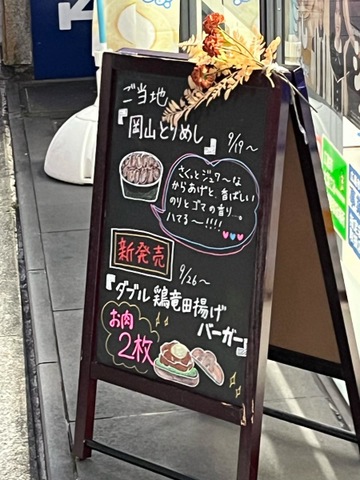 ご当地
『岡山とりめし』
9/19〜
さくっとジュワ〜な
からあげと、香ばしい
のりとゴマの香り…。
ハマる〜!!!!
新発売
9/26〜
『ダブル鶏竜田揚げ
バーガー』
お肉
2枚